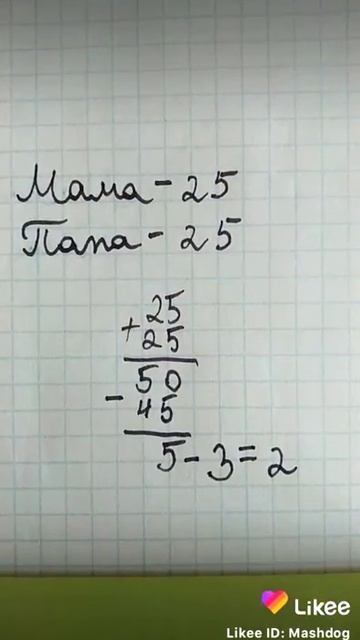 Мама - 25
Папа - 25
25
+ 25
50
- 45
5 - 3 = 2
Likee
Likee ID: Mashdog